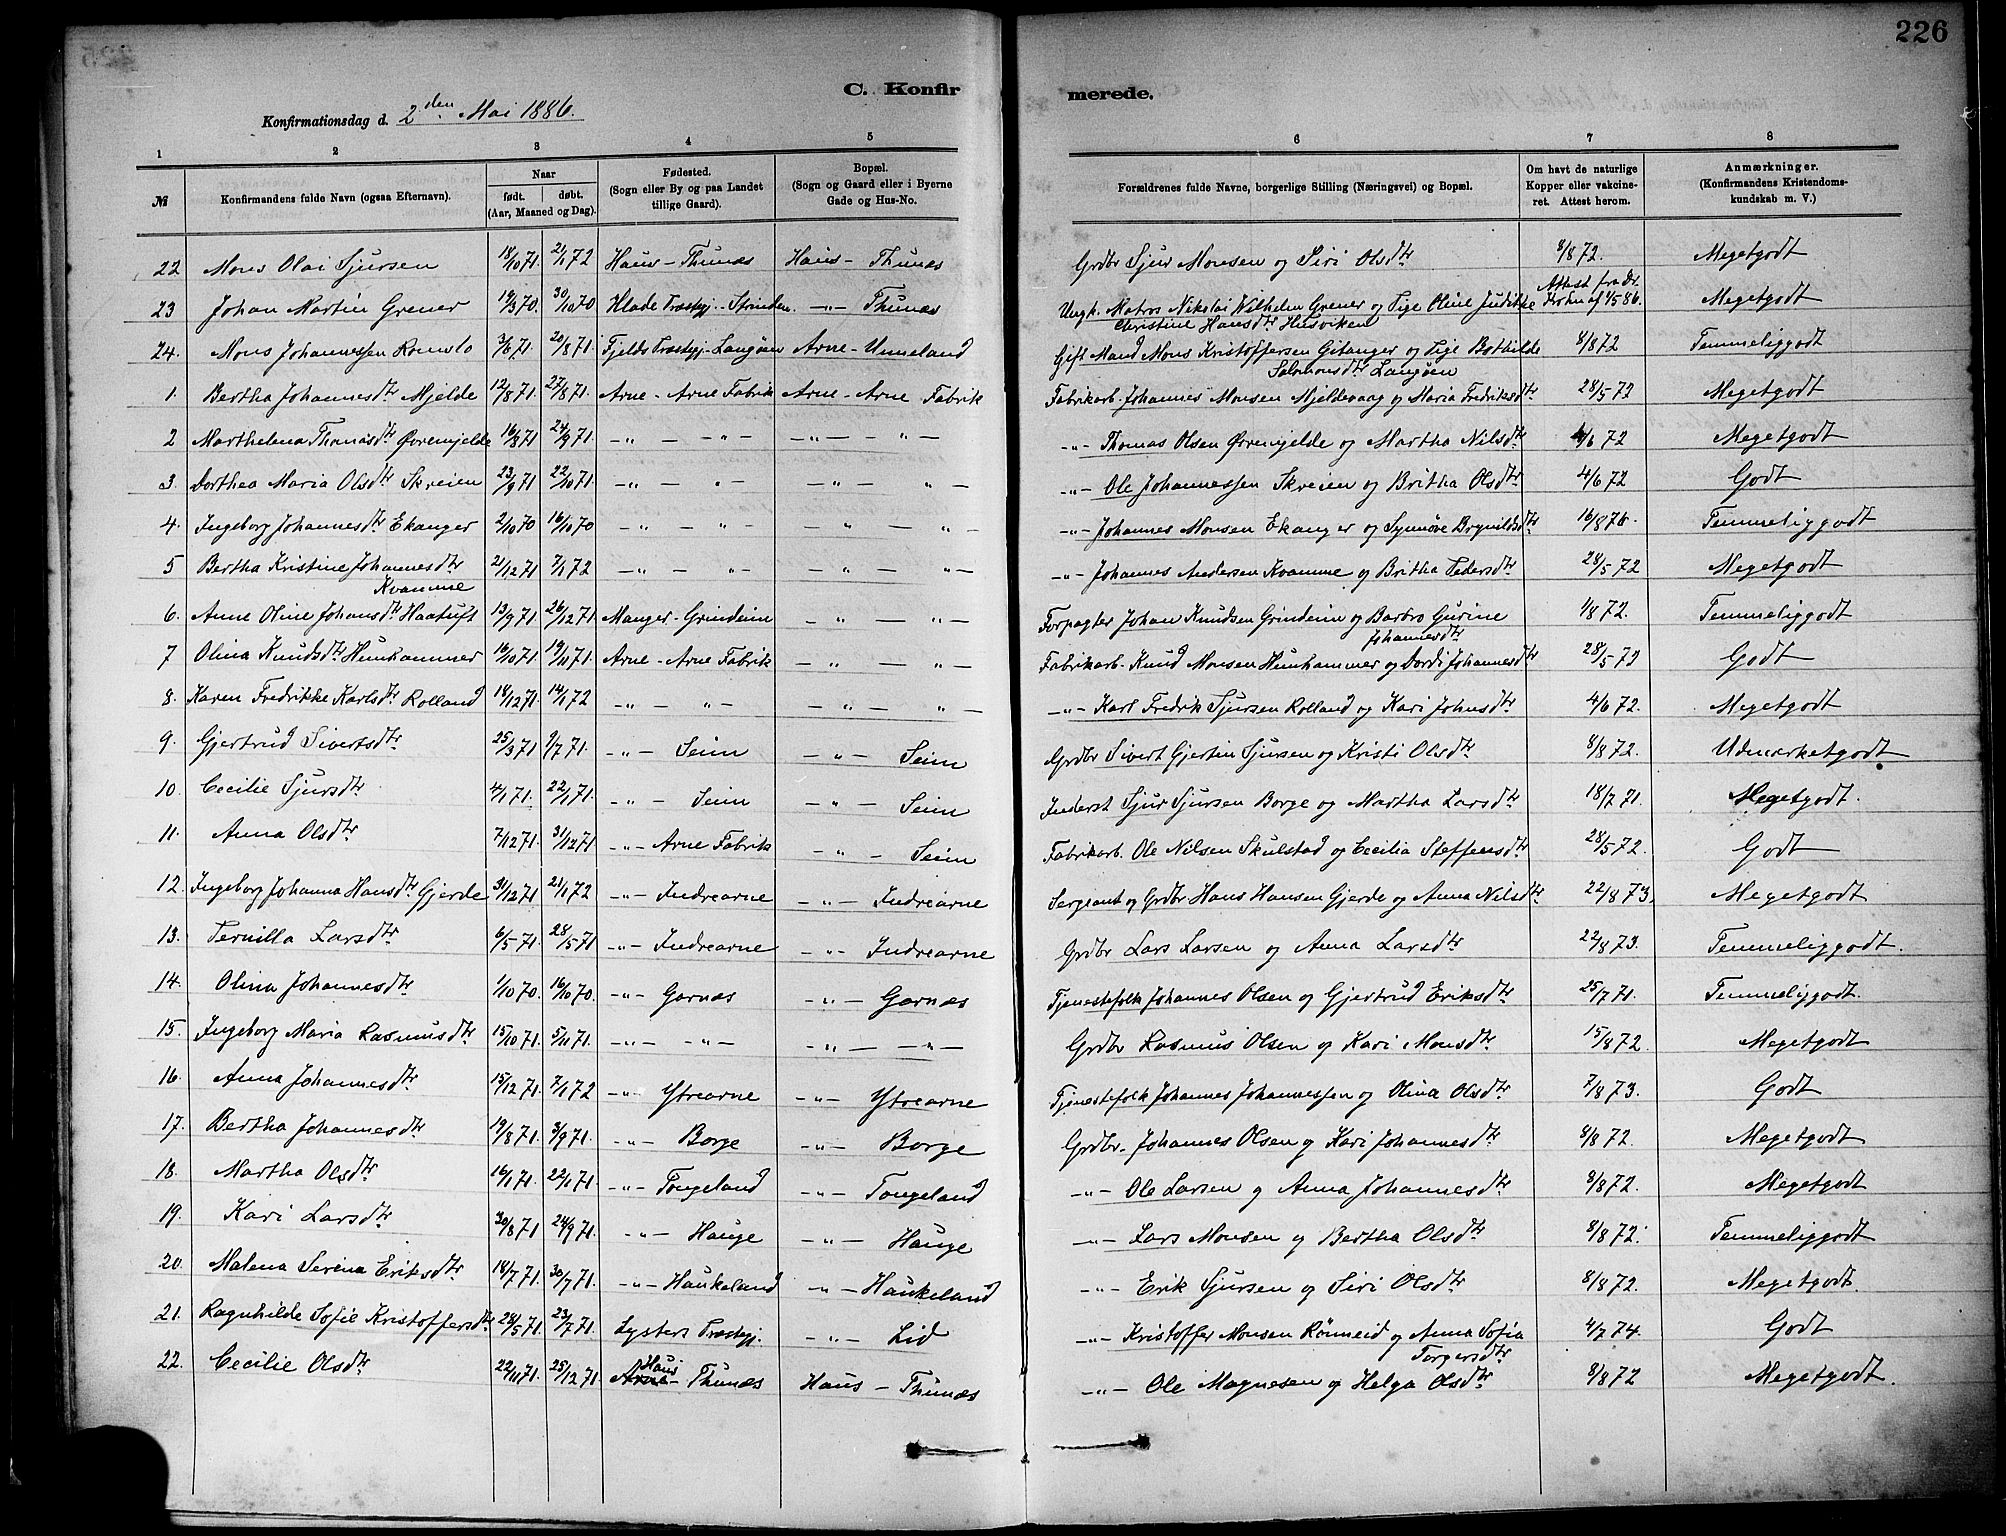 226
C. Konfirmerede.
Konfirmationsdag d. 2den Mai 1886.
1 2 3 4 5 6 7 8
№ Konfirmandens fulde Navn (ogsaa Efternavn). Naar født. døbt. (Aar, Maaned og Dag). Fødested. (Sogn eller By og paa Landet tillige Gaard). Bopæl. (Sogn og Gaard eller i Byerne Gade og Hus-No. Forældrenes fulde Navne, borgerlige Stilling (Næringsvei) og Bopæl. Om havt de naturlige Kopper eller vakcineret. Attest herom. Anmærkninger. (Konfirmandens Kristendomskundskab m. V.)
22 Mons Olai Sjursen 18/10 71. 21/1 72 Haus - Thunæs Haus - Thunæs Grdbr Sjur Monsen og Siri Olsdtr 8/8 72. Megetgodt
23 Johan Martin Grener 19/3 70. 30/10 70 Hlade Præstgj. - Strinden -"- Thunæs Ungk. Matros Nikolai Wilhelm Grener og Pige Oline Juditke Christine Hansdtr Husviken Attest fra Dr. 1/5 86. Megetgodt
24. Mons Johannessen Romslo 3/6 71. 20/8 71. Fjelds Præstgj. - Langøen Arne - Unneland Gift Mand Mons Kristoffersen Gitanger og Pige Bothilde Salomonsdtr Langøen 8/8 72 Temmeliggodt
1. Bertha Johannesdtr Mjelde 12/8 71. 27/8 71. Arne - Arne Fabrik Arne - Arne Fabrik Fabrikarb. Johannes Monsen Mjeldevaag og Maria Fredriksdtr 28/5 72 Megetgodt
2 Marthelena Thomasdtr Øvremjelde 16/8 71 24/9 71. -"- - -"- -"- - "- -"- Thomas Olsen Øvremjelde og Martha Nilsdtr 4/6 72 Megetgodt
3. Dorthea Maria Olsdtr Skreien 23/9 71 22/10 71. -"- - "- -"- "- -"- Ole Johannessen Skreien og Britha Olsdtr 4/6 72 Godt
4. Ingeborg Johannesdtr Ekanger 2/10 70 16/10 70 -"- - "- - "- - "- -"- Johannes Monsen Ekanger og Synnøve Brynildsdtr 16/8 76. Temmeliggodt
5 Bertha Kristine Johannesdtr Kvamme 21/12 71 7/1 72 -"- - "- - "- - "- -"- Johannes Andersen Kvamme og Britha Pedersdtr 28/5 72 Megetgodt
6. Anne Oline Johansdtr Haatuft 13/9 71 26/12 71. Manger - Grindeim - "- - "- Forpagter Johan Knudsen Grindeim og Barbro Gurine Johannesdtr 1/8 72. Temmeliggodt
7 Olina Knudsdtr Humhammer 10/10 71. 19/10 71. Arne - Arne Fabrik - "- - "- Fabrikarb. Knud Monsen Humhammer og Dordi Johannesdtr 28/5 72 Godt
8. Karen Fredrikke Karlsdtr Rolland 18/12 71. 14/1 72 -"- - "- - "- - "- -"- Karl Fredrik Sjursen Rolland og Kari Johnsdtr 4/6 72. Megetgodt
9. Gjertrud Sivertsdtr 25/3 71 9/7 71. -"- Seim - "- Seim Grdbr Sivert Gjertin Sjursen og Kristi Olsdtr 8/8 72. Udmærketgodt
10. Cecilie Sjursdtr 4/1 71. 22/1 71. -"- Seim - "- Seim Inderst Sjur Sjursen Borge og Martha Larsdtr 18/7 71. Megetgodt.
11. Anna Olsdtr 7/12 71. 31/12 71 -"- Arne Fabrik - "- Seim Fabrikarb. Ole Nilsen Skulstad og Cecilia Steffensdtr 28/5 72. Godt
12. Ingeborg Johanna Hansdtr Gjerde 31/12 71 21/1 72 -"- Indrearne - "- Indrearne Sergeant og Grdbr Hans Hansen Gjerde og Anna Nilsdtr 22/8 73. Megetgodt
13. Pernilla Larsdtr 6/5 71. 28/5 71 -"- Indrearne - "- Indrearne Grdbr Lars Larsen og Anna Larsdtr 22/8 73. Temmeliggodt.
14. Olina Johannesdtr 1/10 70. 16/10 70. -"- Garnæs -"- Garnæs Tjenestefolk Johannes Olsen og Gjertrud Eriksdtr 25/7 71. Temmeliggodt.
15. Ingeborg Maria Rasmusdtr 15/10 71. 5/11 71. -"- -"- -"- -"- Grdbr Rasmus Olsen og Kari Monsdtr 15/8 72. Megetgodt
16. Anna Johannesdtr 15/12 71. 7/1 72 -"- Ytrearne -"- Ytrearne Tjenestefolk Johannes Johannessen og Olina Olsdtr 7/8 73. Godt
17. Bertha Johannesdtr 19/8 71. 3/9 71. -"- Borge -"- Borge Grdbr. Johannes Olsen og Kari Johannesdtr 8/8 72. Megetgodt
18. Martha Olsdtr 16/1 71. 22/1 71. -"- Tongeland -"- Tongeland -"- Ole Larsen og Anna Johannesdtr 8/8 72. Megetgodt
19. Kari Larsdtr 30/8 71 24/9 71. -"- Hauge -"- Hauge -"- Lars Monsen og Bertha Olsdtr 8/8 72. Temmeliggodt
20. Malena Serina Eriksdtr 18/7 71. 30/7 71. -"- Haukeland -"- Haukeland -"- Erik Sjursen og Siri Olsdtr 8/8 72. Megetgodt.
21. Ragnhilde Sofie Kristoffersdtr 28/5 71. 23/7 71. Lysters Præstgj. -"- Lid -"- Kristoffer Monsen Rønneid og Anna Sofia Torgersdtr 4/7 74. Godt
22. Cecilie Olsdtr 22/11 71. 25/12 71 Arne Haus - Thunæs Haus - Thunæs -"- Ole Magnesen og Helga Olsdtr 8/8 72 Megetgodt.